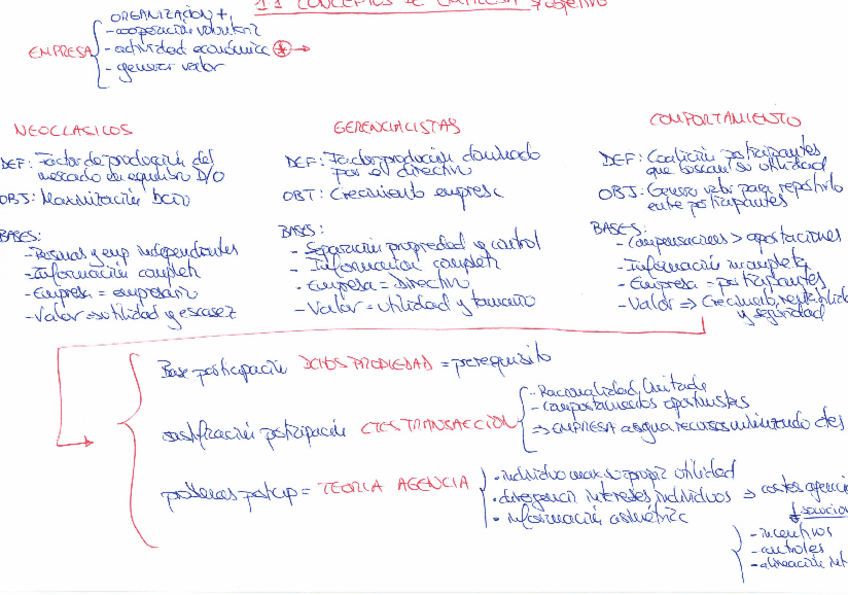 1.1 CONCEPTOS DE EMPRESA y objetivo
ORGANIZACIÓN +
- cooperación voluntaria
EMPRESA - actividad económica
- generar valor
NEOCLASICOS
DEF: Factor de producción del
mercado en equilibrio D/O
OBJ: Maximización Bcio
BASES:
- Personas y emp independientes
- Información completa
- Empresa = empresario
- Valor => utilidad y escasez
GERENCIALISTAS
DEF: Factor producción dominado
por el directivo
OBJ: Crecimiento empresa
BASES:
- Separación propiedad y control
- Información completa
- Empresa = Directivo
- Valor = utilidad y tamaño
COMPORTAMIENTO
DEF: Coalición participantes
que buscan su utilidad
OBJ: Generar valor para repartirlo
entre participantes
BASES:
- Compensaciones > aportaciones
- Información incompleta
- Empresa = participantes
- Valor => Crecimiento, rentabilidad
y seguridad
Base participación DCHOS PROPIEDAD = prerequisito
Justificación participación CTES TRANSACCION
- Racionalidad limitada
- comportamientos oportunistas
=> EMPRESA asigna recursos minimizando ctes
problemas particip = TEORIA AGENCIA
· individuo max. su propia utilidad
· divergencia intereses individuos => costes agencia
· información asimétrica
- incentivos
- controles
- alineación int